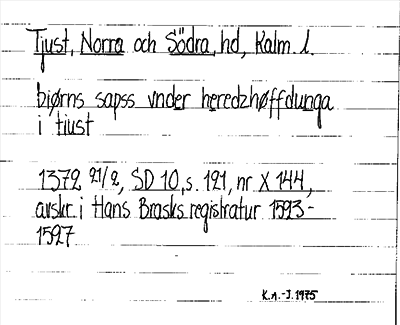 Tjust, Norra och Södra, hd, Kalm. l.
biørns sapss vnder heredzhøffdunga
i tiust
1379 21/2, SD 10, s. 121, nr X 144,
avskr. i Hans Brasks registratur 1523-
1527
K.n.-J. 1975